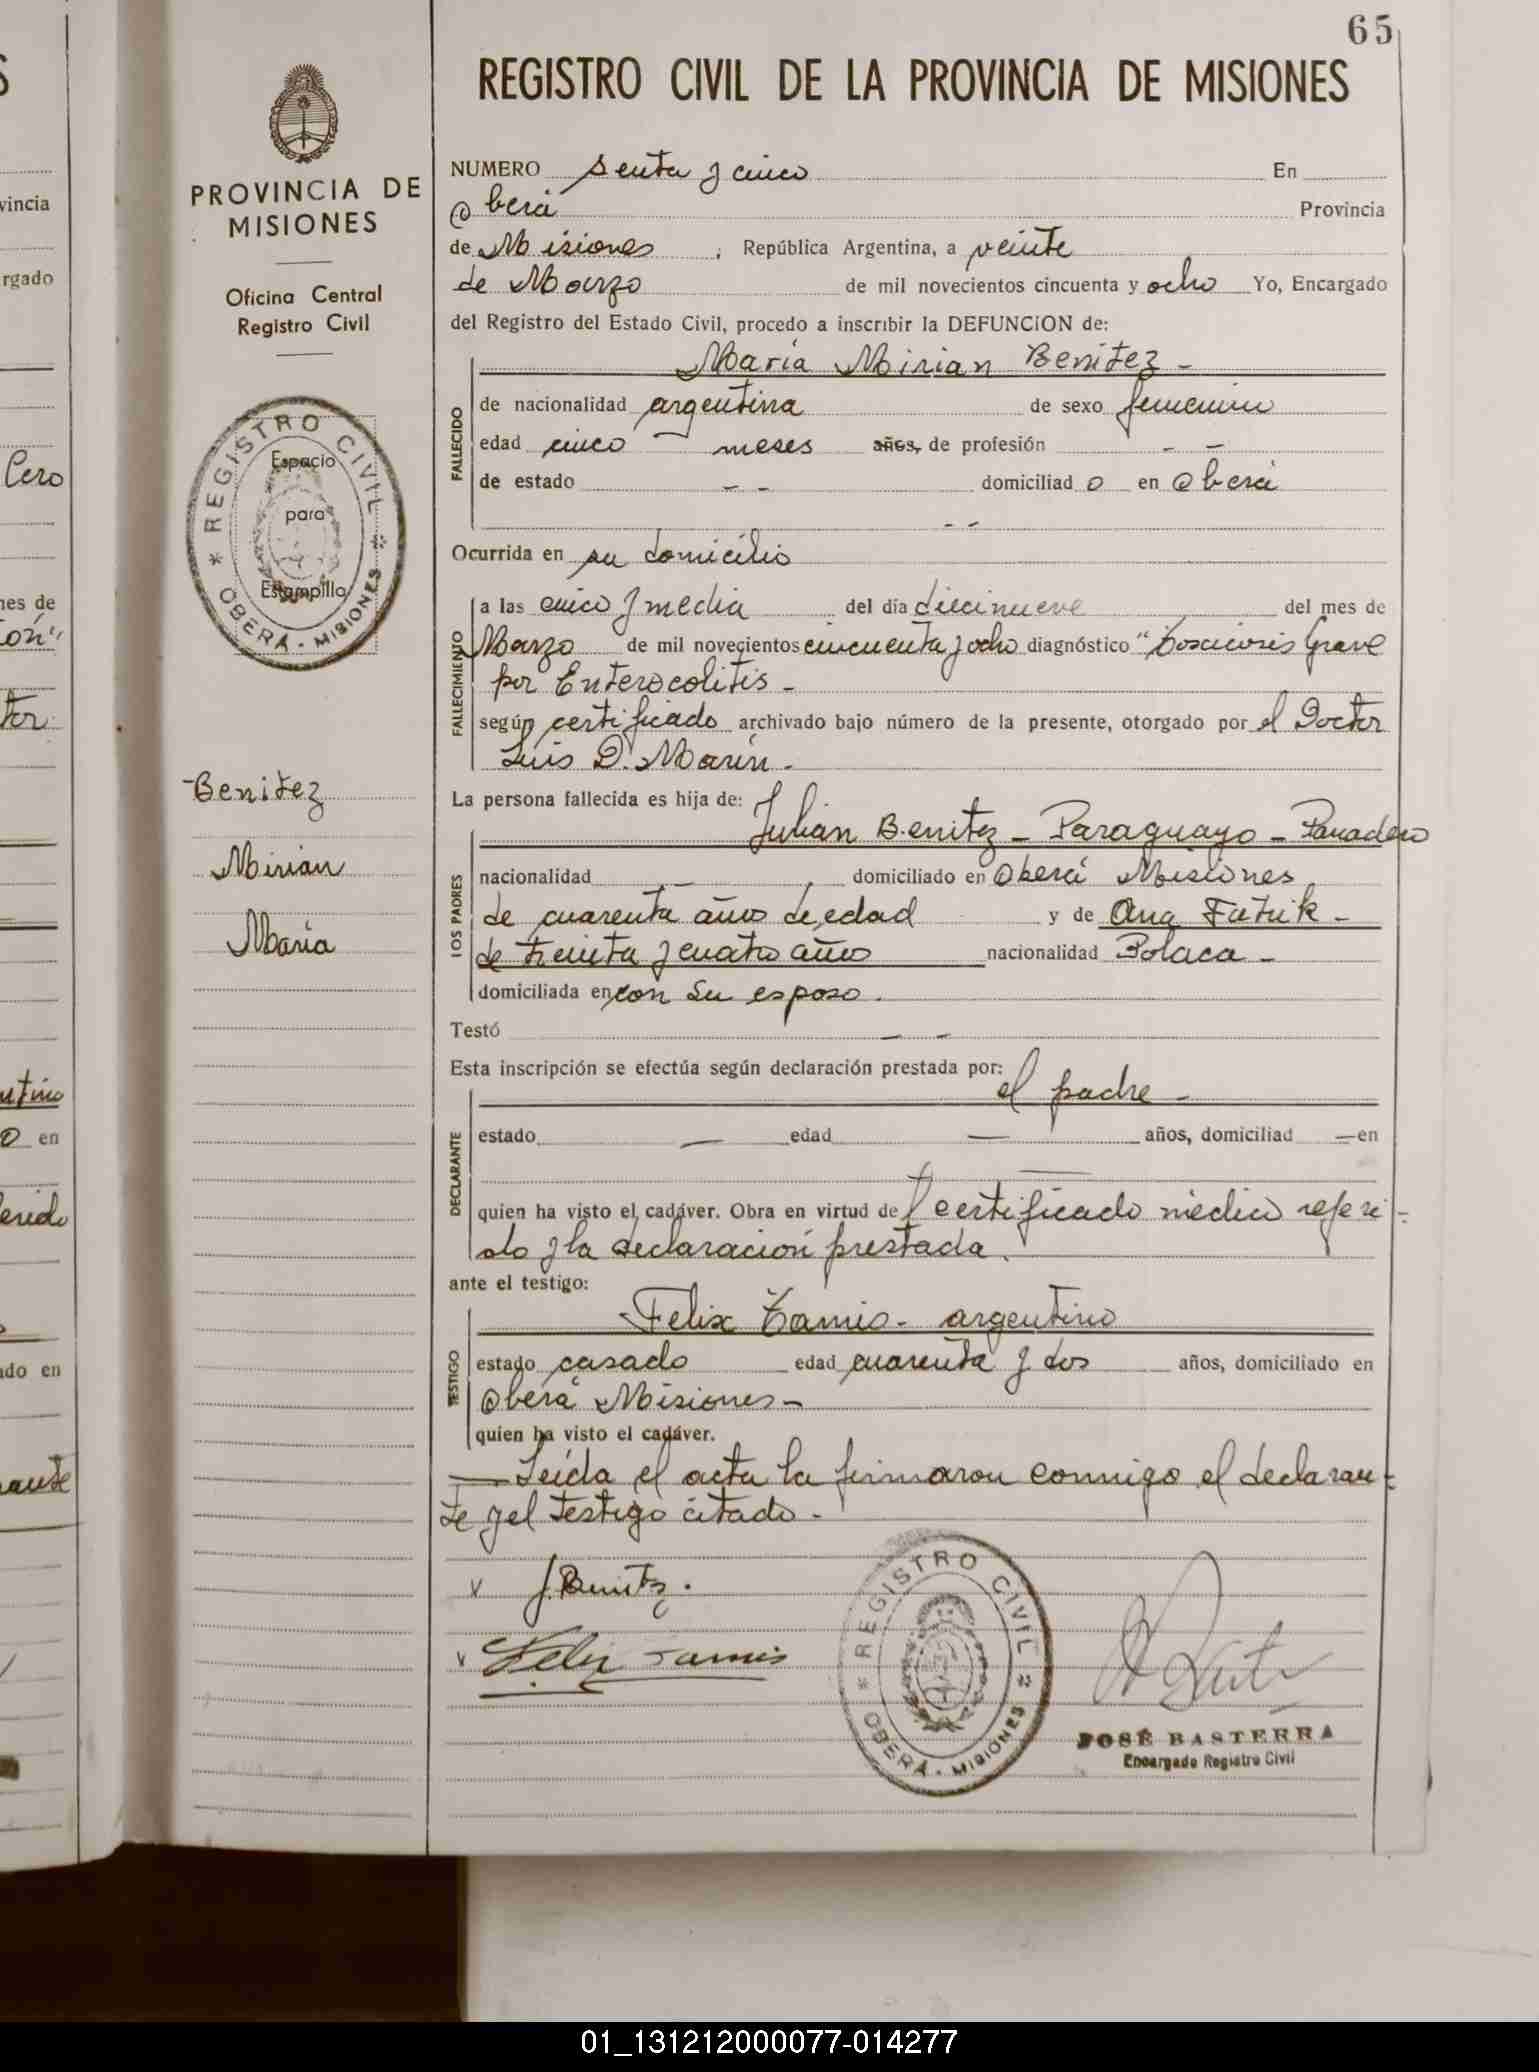 65
REGISTRO CIVIL DE LA PROVINCIA DE MISIONES
PROVINCIA DE
MISIONES
Oficina Central
Registro Civil
REGISTRO CIVIL
OBERÁ - MISIONES
Espacio
para
Estampilla
Benitez
Mirian
María
NUMERO senta y cinco En
Oberá Provincia
de Misiones, República Argentina, a veinte
de Marzo de mil novecientos cincuenta y ocho Yo, Encargado
del Registro del Estado Civil, procedo a inscribir la DEFUNCION de:
María Mirian Benitez -
FALLECIDO
de nacionalidad argentina de sexo femenino
edad cinco - meses años, de profesión - -
de estado - - domiciliado en Oberá
- -
Ocurrida en su domicilio
FALLECIMIENTO
a las cinco y media del día diecinueve del mes de
Marzo de mil novecientos cincuenta y ocho diagnóstico "Toxicosis Grave
por Enterocolitis -
según certificado archivado bajo número de la presente, otorgado por el Doctor
Luis D. Marín -
La persona fallecida es hija de:
LOS PADRES
Julián Benitez - Paraguayo - Panadero
nacionalidad - domiciliado en Oberá Misiones
de cuarenta años de edad y de Ana Fatrik -
de treinta y cuatro años nacionalidad Polaca -
domiciliada en con su esposo.
Testó - -
Esta inscripción se efectúa según declaración prestada por:
el padre -
DECLARANTE
estado - edad - años, domiciliad - en
quien ha visto el cadáver. Obra en virtud del certificado médico referi-
do y la declaración prestada.
ante el testigo:
TESTIGO
Felix Tamis - argentino
estado casado edad cuarenta y dos años, domiciliado en
Oberá Misiones -
quien ha visto el cadáver.
Leída el acta la firmaron conmigo el declaran-
te y el testigo citado -
J. Benitez.
Felix Tamis
REGISTRO CIVIL
OBERÁ - MISIONES
JOSÉ BASTERRA
Encargado Registro Civil
01_131212000077-014277